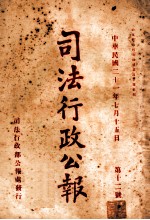 中華民國二十一年七月十五日
第十二號
司法行政公報
司法行政部公報處發行